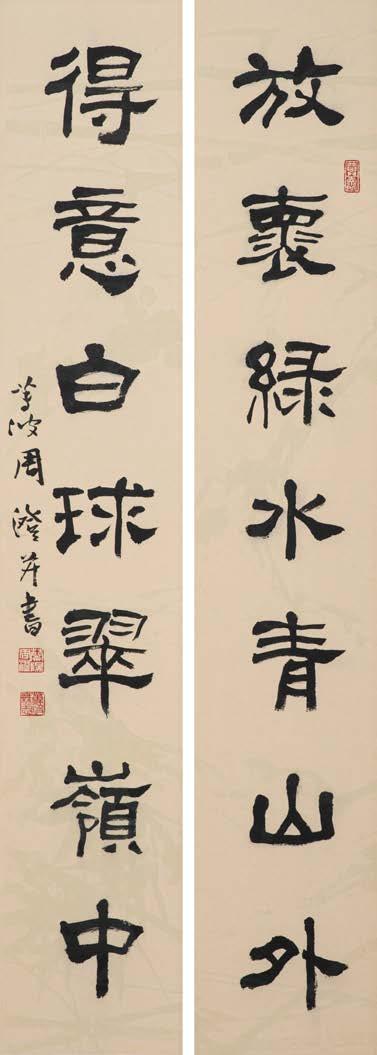 放裏綠水青山外
得意白球翠嶺中
蓴波周澄并書